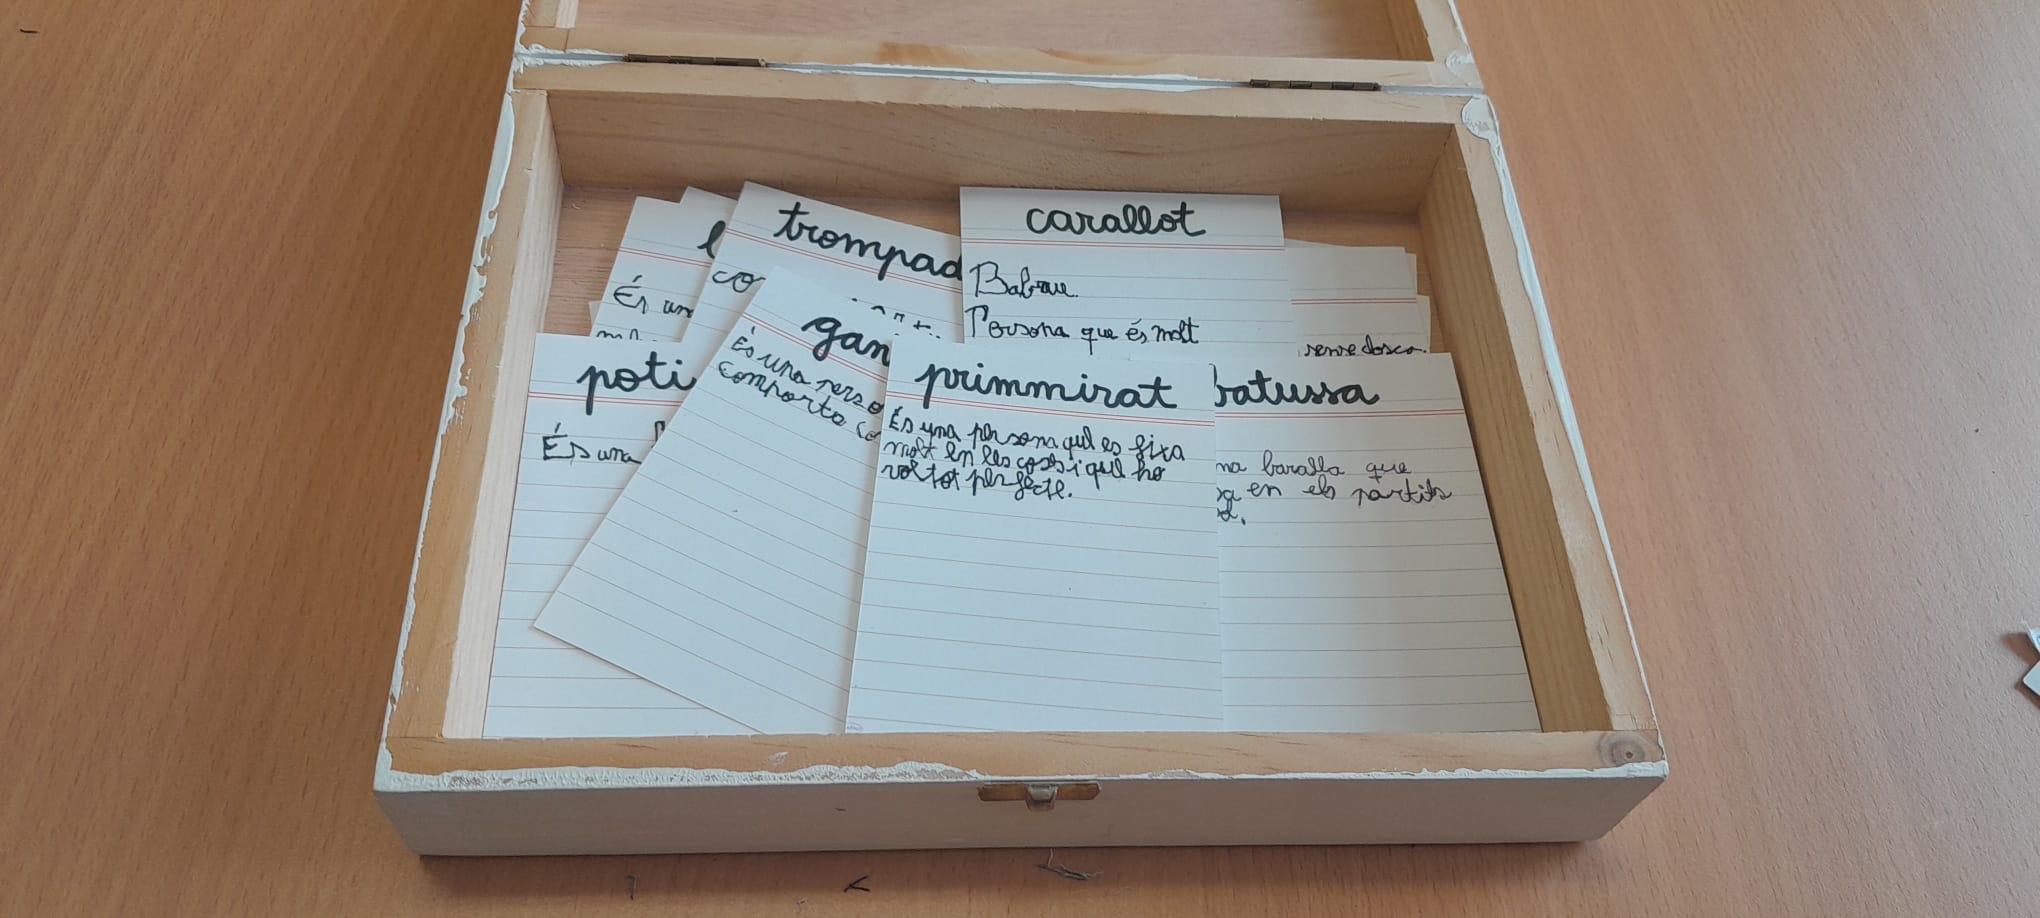 trompad
co
carallot
Babau.
Persona que és molt
És un
sense solta.
poti
És una
gan
És una perso
comporta co
primmirat
És una persona que es fixa
molt en les coses i que ho
vol tot perfecte.
batussa
na baralla que
sa en els partits